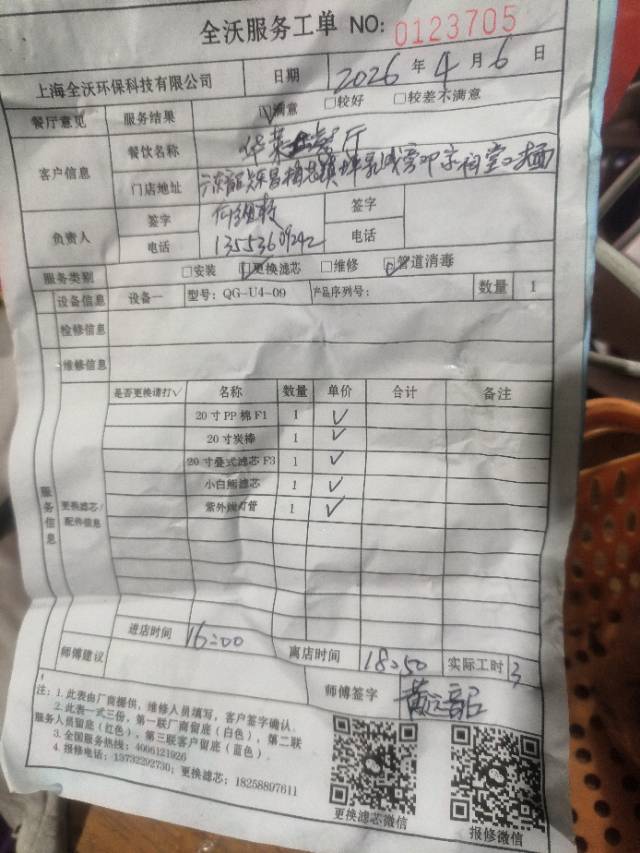 全沃服务工单 NO: 0123705
上海全沃环保科技有限公司 日期 2026 年 4 月 6 日
餐厅意见 服务结果 ☑满意 □较好 □较差不满意
客户信息 餐饮名称 华莱士餐厅
门店地址 广东
负责人 签字 签字
电话 13553609242 电话
服务类别 □安装 ☑更换滤芯 □维修 ☑管道消毒
设备信息 设备一 型号: QG-U4-09 产品序列号: 数量 1
检修信息
维修信息
服务信息 更换滤芯/配件信息 是否更换请打√ 名称 数量 单价 合计 备注
20寸PP棉F1 1 √
20寸炭棒 1 √
20寸叠式滤芯F3 1 √
小白熊滤芯 1 √
紫外线灯管 1 √
进店时间 16:00 离店时间 18:50 实际工时 3
师傅建议 师傅签字
注: 1.此表由厂商提供,维修人员填写,客户签字确认。
2.此表一式三份,第一联厂商留底(白色),第二联
服务人员留底(红色),第三联客户留底(蓝色)。
3.全国服务热线: 4006121926
4.报修电话: 13732292730; 更换滤芯: 18258897611
更换滤芯微信 报修微信